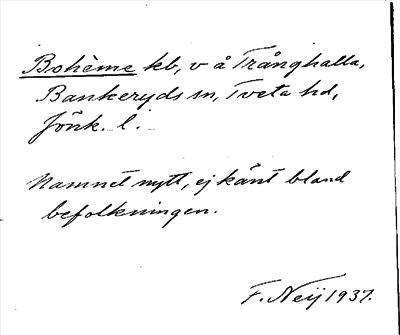 Bohème kb, v å Trånghalla,
Bankeryds sn, Tveta hd,
Jönk. l.
Namnet nytt, ej känt bland
befolkningen.
F. Neij 1937.